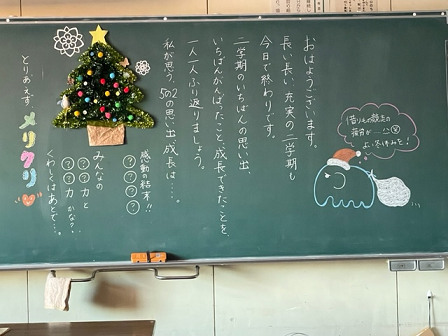 おはようございます。
長い長い充実の二学期も
今日で終わりです。
二学期のいちばんの思い出、
いちばんがんばったこと、成長できたことを、
一人一人ふり返りましょう。
私が思う、5の2の思い出、成長は…。
感動の結末!!
???
みんなの
??力と
??力かな?
くわしくはあとで…。
とりあえず、
メリクリ
よい冬休みを!